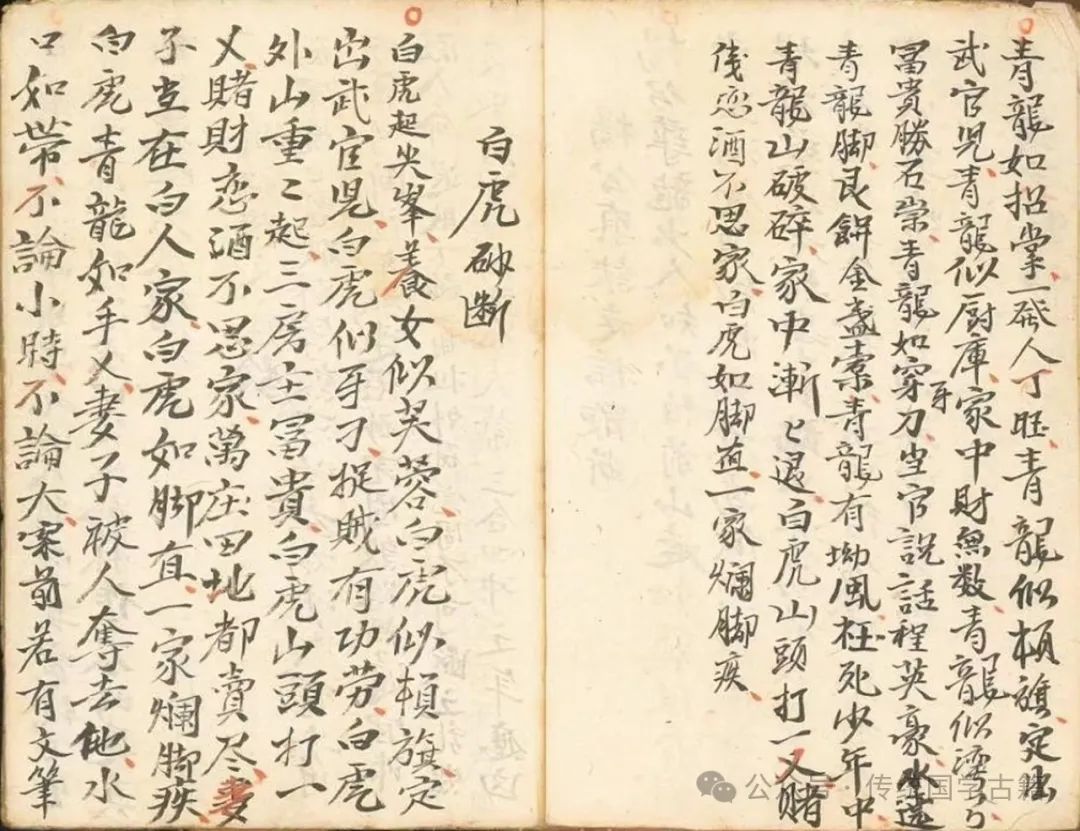 青龍如招掌、一發人丁旺、青龍似頓旗、定出
武官児、青龍似厨庫、家中財無数、青龍似
冨貴勝石崇、青龍如穿牙刀、坐官説話程英豪、水遶
青龍脚、艮餅金盞棠、青龍有坳風、枉死少年中、
青龍山破碎、家中漸〻退、白虎山頭打一乂、賭
戋恋酒不思家、白虎如脚直、一家爛脚疾、
白虎砂断
白虎起尖峯、養女似芙蓉、白虎似頓旗、定
出武官児、白虎似牙刁、捉賊有功劳、白虎
外山重〻起、三房主冨貴、白虎山頭打一
乂、賭財恋酒不思家、萬庄田地都賣尽、妻
子走在白人家、白虎如脚直、一家爛脚疾
白虎青龍如手乂、妻子被人奪去他、水
口如帯、不論小時、不論大、案前若有文筆
公众号·传统国学古籍